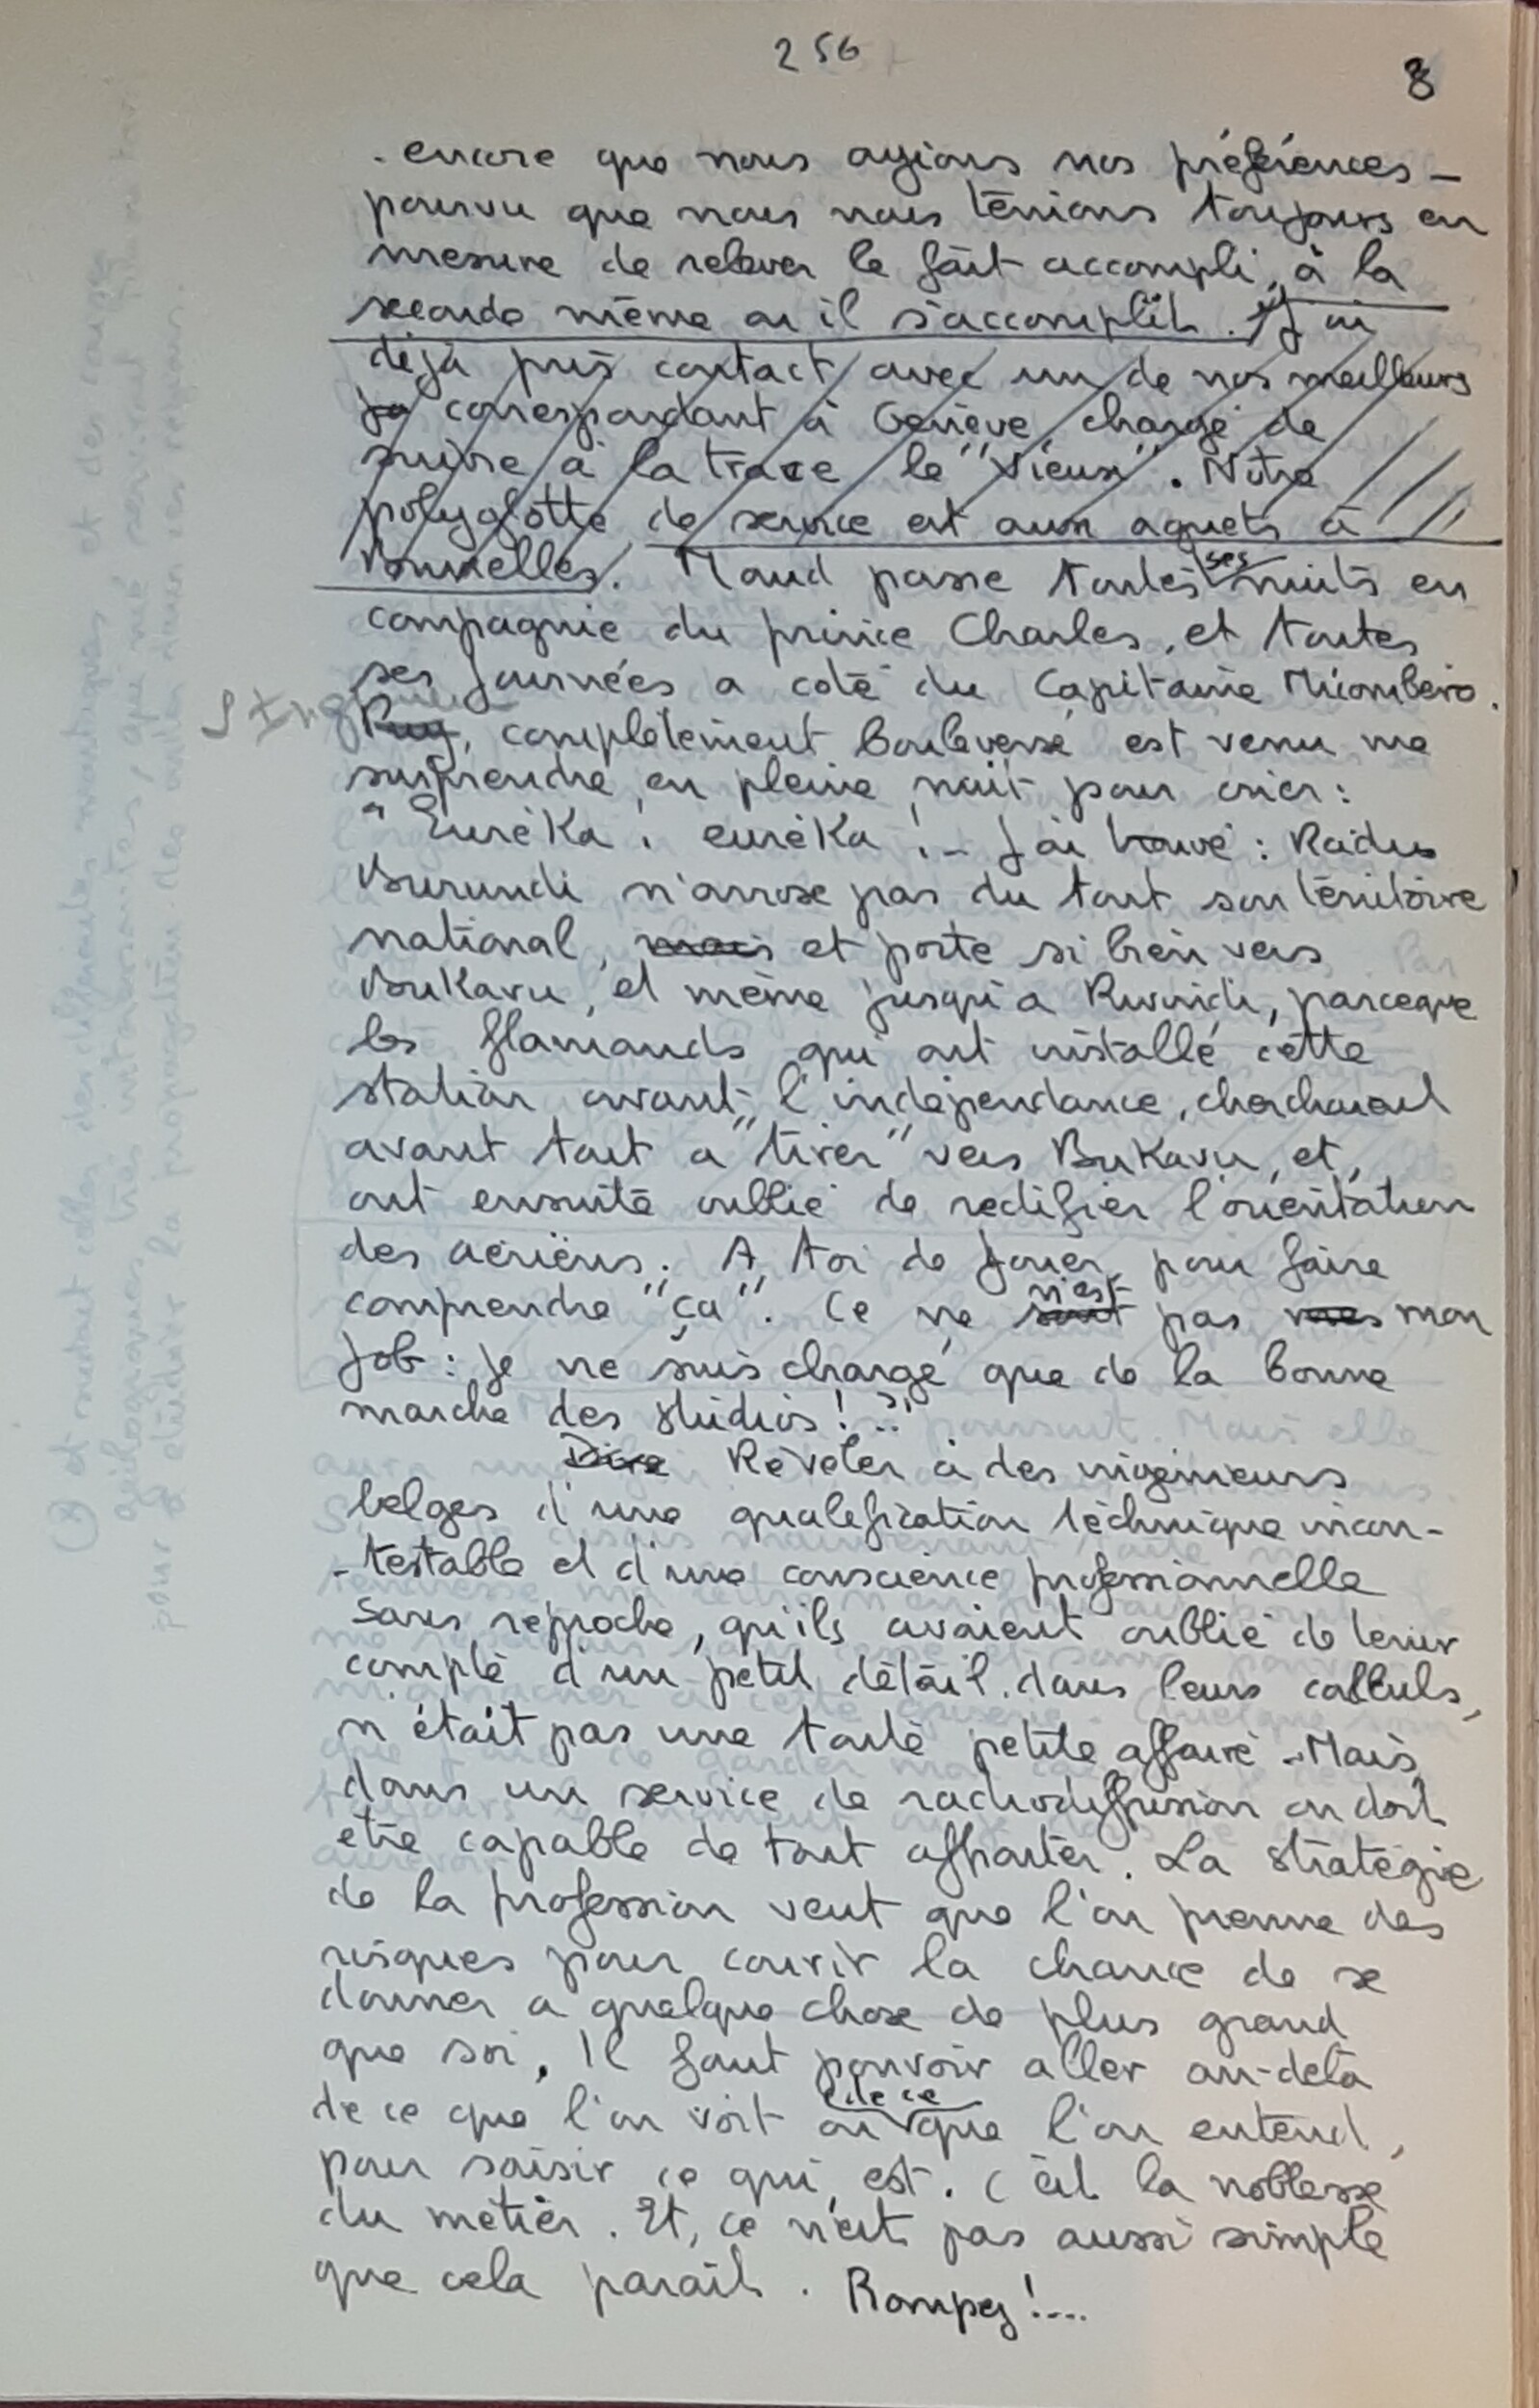 256
8
- encore que nous ayions nos préférences -
pourvu que nous nous tenions toujours en
mesure de relever le fait accompli, à la
seconde même où il s'accomplit. J'ai
déjà pris contact avec un de nos meilleurs
correspondant à Genève, chargé de
suivre à la trace le "Vieux". Notre
polyglotte de service est aux aguets à
Bruxelles. Maud passe toutes ses nuits en
compagnie du prince Charles, et toutes
ses journées a coté du Capitaine Micombero.
Puy, complètement bouleversé est venu me
surprendre en pleine nuit pour crier :
"Euréka ! euréka ! - J'ai trouvé : Radio
Burundi n'arrose pas du tout son territoire
national, mais et porte si bien vers
Bukavu, et même jusqu'a Ruvindi, parceque
les flamands qui ont installé cette
station avant l'indépendance, cherchaient
avant tout a "tirer" vers Bukavu, et,
ont ensuite oublié de rectifier l'orientation
des aériens. A toi de jouer pour faire
comprendre "ça". Ce ne sont n'est pas mes mon
job : je ne suis chargé que de la bonne
marche des studios !..."
Dire Révéler à des ingénieurs
belges d'une qualification technique incon-
-testable et d'une conscience professionnelle
sans reproche, qu'ils avaient oublié de tenir
compte d'un petit détail dans leurs calculs,
n'était pas une toute petite affaire. Mais,
dans un service de radiodiffusion on doit
etre capable de tout affronter. La stratégie
de la profession veut que l'on prenne des
risques pour courir la chance de se
donner a quelque chose de plus grand
que soi. Il faut pouvoir aller au-delà
de ce que l'on voit ou de ce que l'on entend,
pour saisir ce qui est. C'est la noblesse
du métier. Et, ce n'est pas aussi simple
que cela parait. Rompez !....